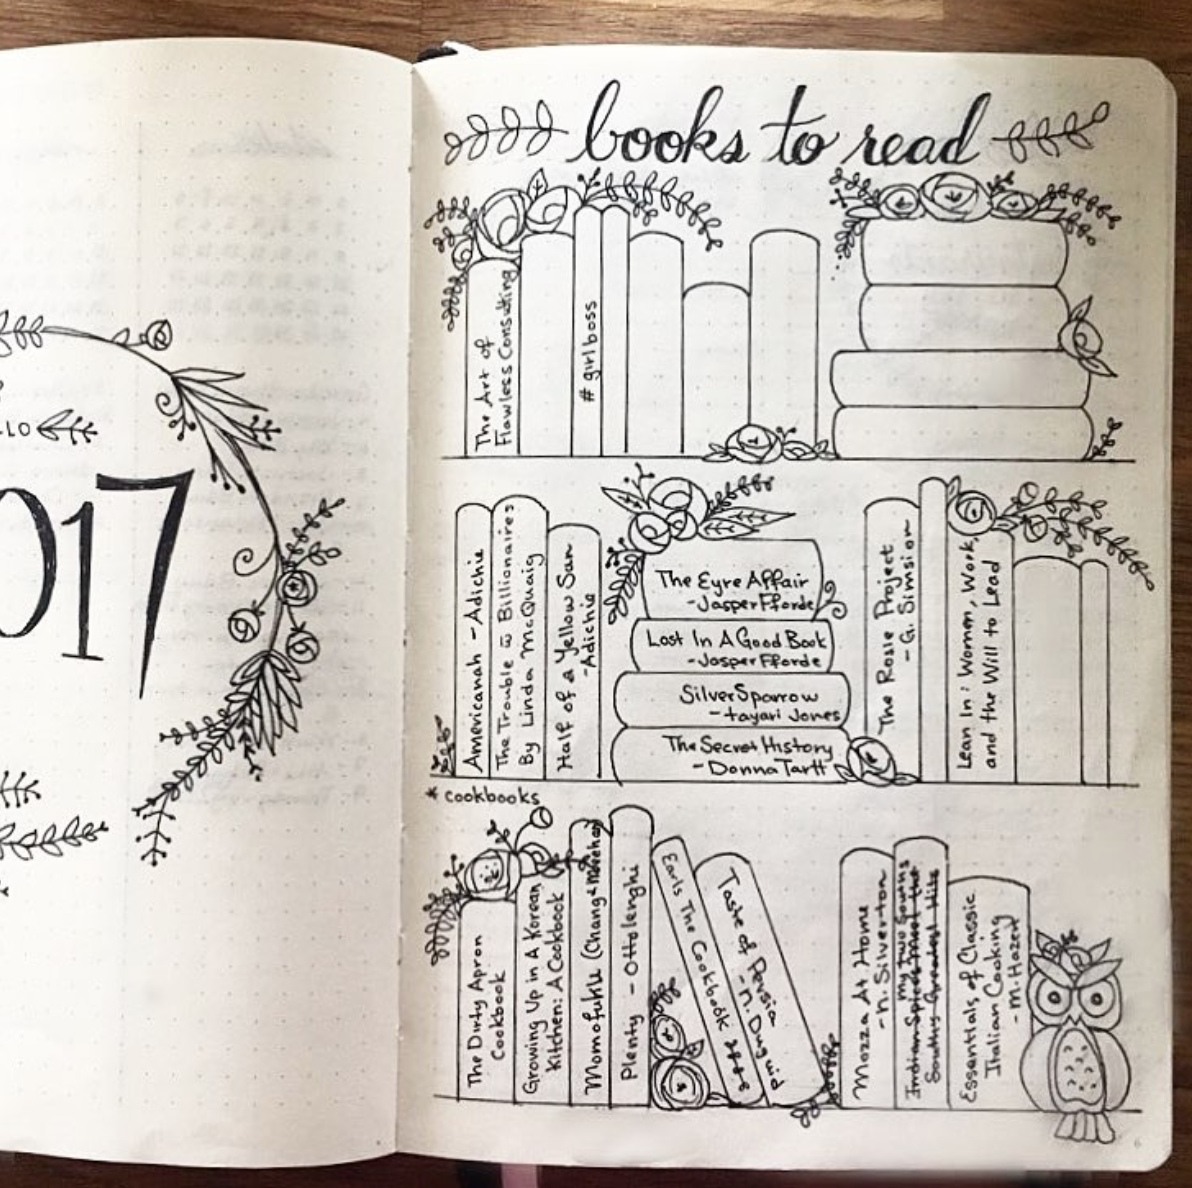 books to read
2017
The Art of
Flawless Consulting
# girlboss
Americanah - Adichie
The Trouble w Billionaires
By Linda McQuaig
Half of a Yellow Sun
- Adichie
The Eyre Affair
- Jasper Fforde
Lost In A Good Book
- Jasper Fforde
Silver Sparrow
- tayari Jones
The Secret History
- Donna Tartt
The Rosie Project
- G. Simsion
Lean In: Women, Work,
and the Will to Lead
* cookbooks
The Dirty Apron
Cookbook
Growing Up in A Korean
Kitchen: A Cookbook
Momofuku (Chang & Meehan)
Plenty - Ottolenghi
Earls The Cookbook
Taste of Persia
- N. Duguid
Mozza At Home
- N. Silverton
My Two Souths
Indian Spices Meet the
Souths Greatest Hits
Essentials of Classic
Italian Cooking
- M. Hazan
6